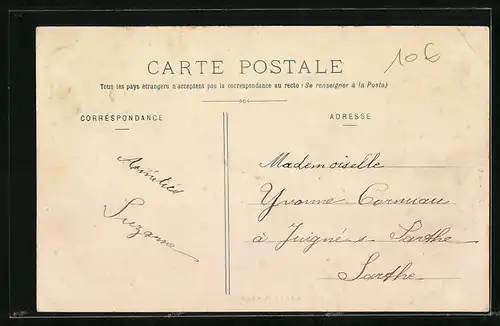 106
CARTE POSTALE
Tous les pays étrangers n'acceptent pas la correspondance au recto (Se renseigner à la Poste)
CORRESPONDANCE
ADRESSE
Amitiés
Suzanne
Mademoiselle
Yvonne Cornuau
à Juigné s Sarthe
Sarthe